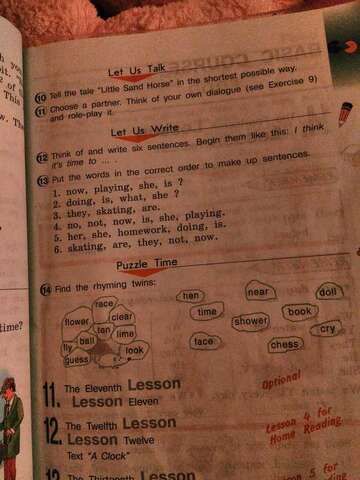 Let Us Talk
10 Tell the tale "Little Sand Horse" in the shortest possible way.
11 Choose a partner. Think of your own dialogue (see Exercise 9)
and role-play it.
Let Us Write
12 Think of and write six sentences. Begin them like this: I think
it's time to ... .
13 Put the words in the correct order to make up sentences.
1. now, playing, she, is ?
2. doing, is, what, she ?
3. they, skating, are.
4. no, not, now, is, she, playing.
5. her, she, homework, doing, is.
6. skating, are, they, not, now.
Puzzle Time
14 Find the rhyming twins:
race
flower
clear
ten
ball
lime
fly
guess
look
hen
near
doll
time
book
shower
cry
face
chess
11. The Eleventh Lesson
Lesson Eleven
Optional
12. The Twelfth Lesson
Lesson Twelve
Text "A Clock"
Lesson 4 for
Home Reading
13 The Thirteenth Lesson
Lesson 5 for
time?
This